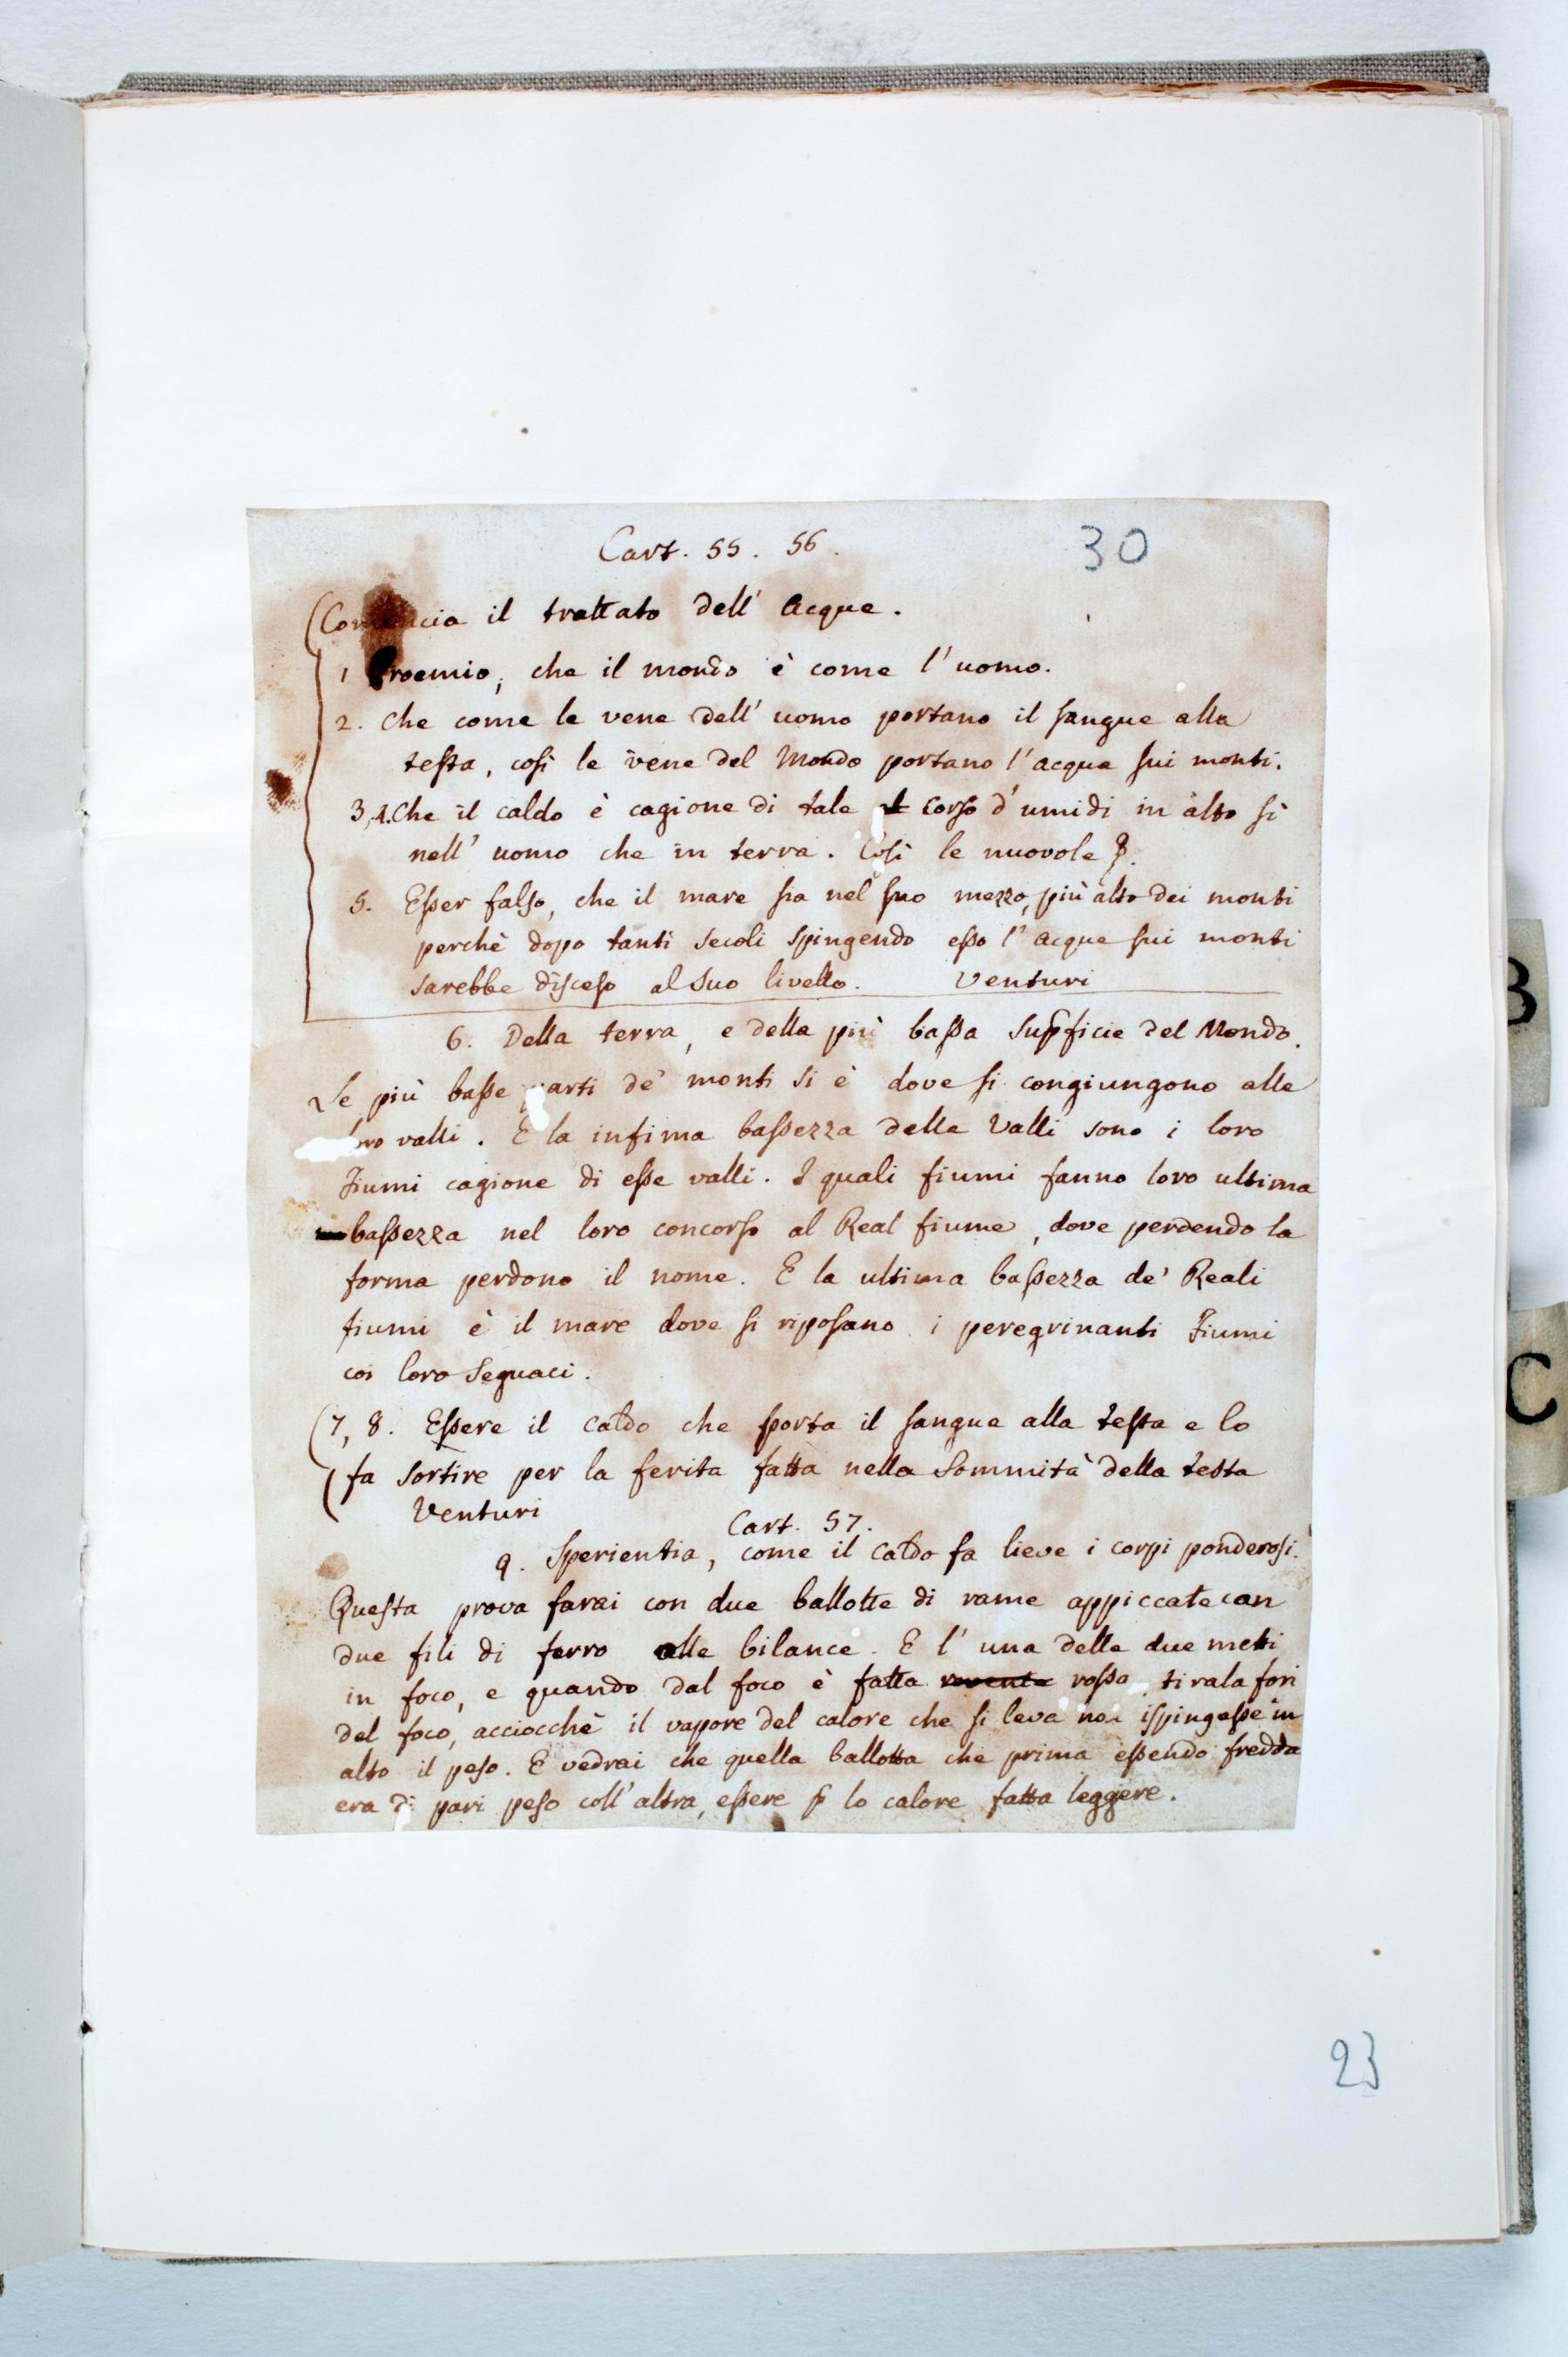 Cart. 55. 56.
30
(Comincia il trattato dell' Acque.
1 Proemio, che il mondo è come l'uomo.
2. Che come le vene dell' uomo portano il sangue alla
testa, così le vene del Mondo portano l'acqua sui monti.
3,4. Che il caldo è cagione di tale corso d'umidi in alto sì
nell' uomo che in terra. Così le nuovole
5. Esser falso, che il mare sia nel suo mezzo, più alto dei monti
perchè dopo tanti secoli spingendo esso l'acque sui monti
sarebbe disceso al suo livello. Venturi
6. Della terra, e della più bassa supficie del Mondo.
Le più basse parti de' monti si è dove si congiungono alle
loro valli. E la infima bassezza delle Valli sono i loro
Fiumi cagione di esse valli. I quali fiumi fanno loro ultima
bassezza nel loro concorso al Real fiume, dove perdendo la
forma perdono il nome. E la ultima bassezza de' Reali
fiumi è il mare dove si riposano i peregrinanti Fiumi
coi loro Seguaci.
(7, 8. Essere il caldo che porta il sangue alla testa e lo
(fa sortire per la ferita fatta nella Sommità della testa
Venturi
Cart. 57.
9. Sperientia, come il caldo fa lieve i corpi ponderosi.
Questa prova farai con due ballotte di rame appiccate con
due fili di ferro alle bilance. E l' una delle due metti
in foco, e quando dal foco è fatta rovente rossa, tirala fori
del foco, acciocchè il vapore del calore che si leva non ispingesse in
alto il peso. E vedrai che quella ballotta che prima essendo fredda
era di pari peso coll'altra, essere p lo calore fatta leggere.
23
B
C